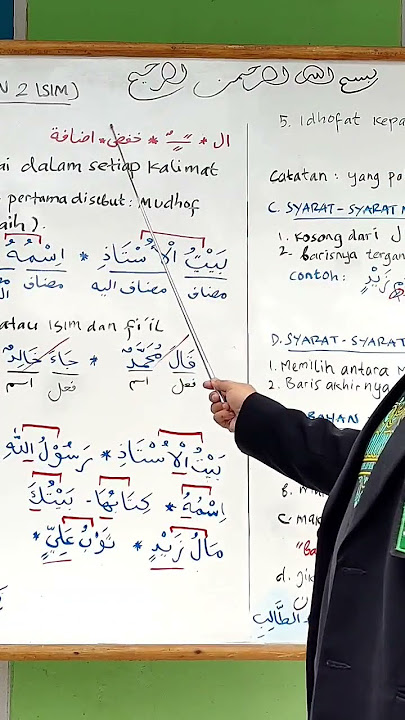 بسم الله الرحمن الرحيم
N 2 ISIM)
ال * ــًــٍــٌ * خفض * اضافة
ai dalam setiap kalimat
pertama disebut: Mudhof
aih).
بَيْتُ الْاُسْتَاذِ * اِسْمُهُ
مضاف مضاف اليه مضاف
atau ISIM dan fi'il
قَالَ مُحَمَّدٌ * جَاءَ خَالِدٌ
فعل اسم فعل اسم
بَيْتُ الْاُسْتَاذِ * رَسُوْلُ اللهِ
اِسْمُهُ * كِتَابُهَا - بَيْتُكَ
مَالُ زَيْدٍ * ثَوْبُ عَلِيٍّ *
5. Idhofat kepa
Catatan : yang po
C. SYARAT-SYARAT M
1. Kosong dari J
2. Barisnya tergan
contoh: زَيْدٍ
D. SYARAT-SYARAT
1. Memilih antara M
2. Baris akhirnya
BAHAN
c. mak
"ba
d. jik
الطَّالِبِ